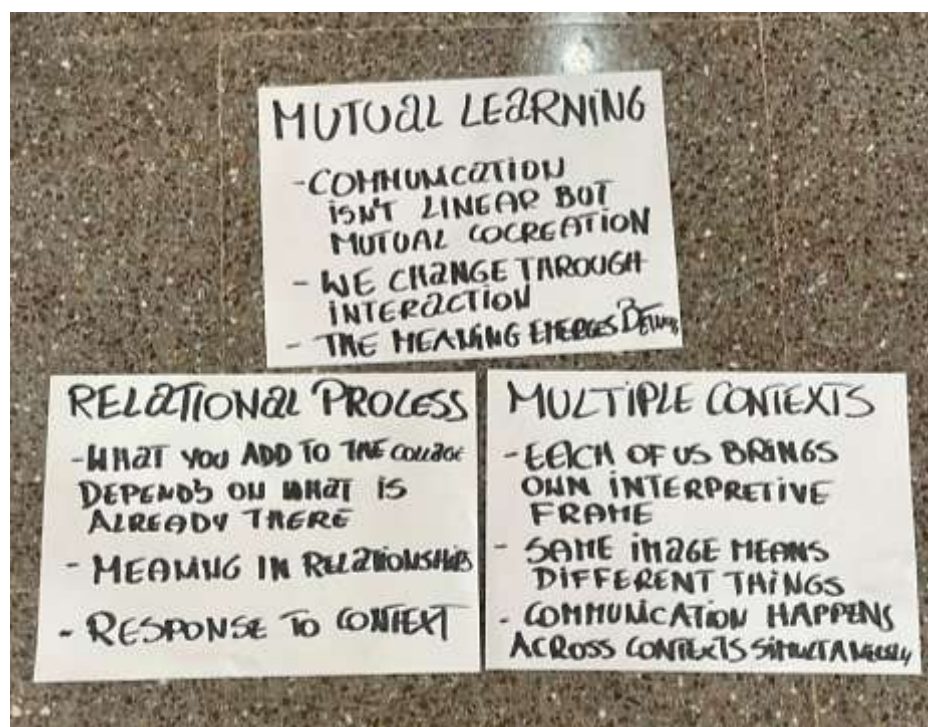 MUTUAL LEARNING
- COMMUNICATION
ISN'T LINEAR BUT
MUTUAL COCREATION
- WE CHANGE THROUGH
INTERACTION
- THE MEANING EMERGES
RELATIONAL PROCESS
- WHAT YOU ADD TO THE COLLAGE
DEPENDS ON WHAT IS
ALREADY THERE
- MEANING IN RELATIONSHIPS
- RESPONSE TO CONTEXT
MULTIPLE CONTEXTS
- EACH OF US BRINGS
OWN INTERPRETIVE
FRAME
- SAME IMAGE MEANS
DIFFERENT THINGS
- COMMUNICATION HAPPENS
ACROSS CONTEXTS SIMULTANEOUSLY